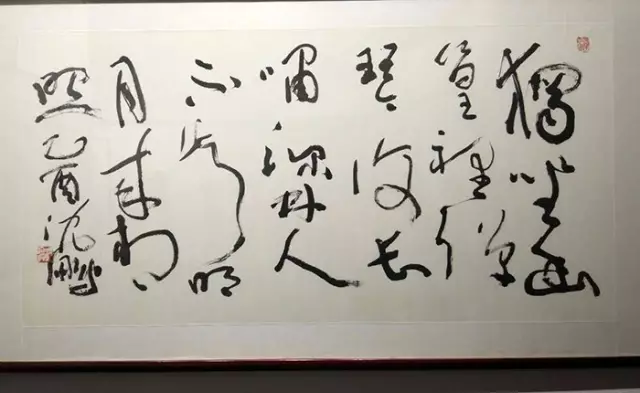 獨坐幽
篁裡彈
琴復長
嘯深林人
不知明
月來相
照乙酉沈鵬